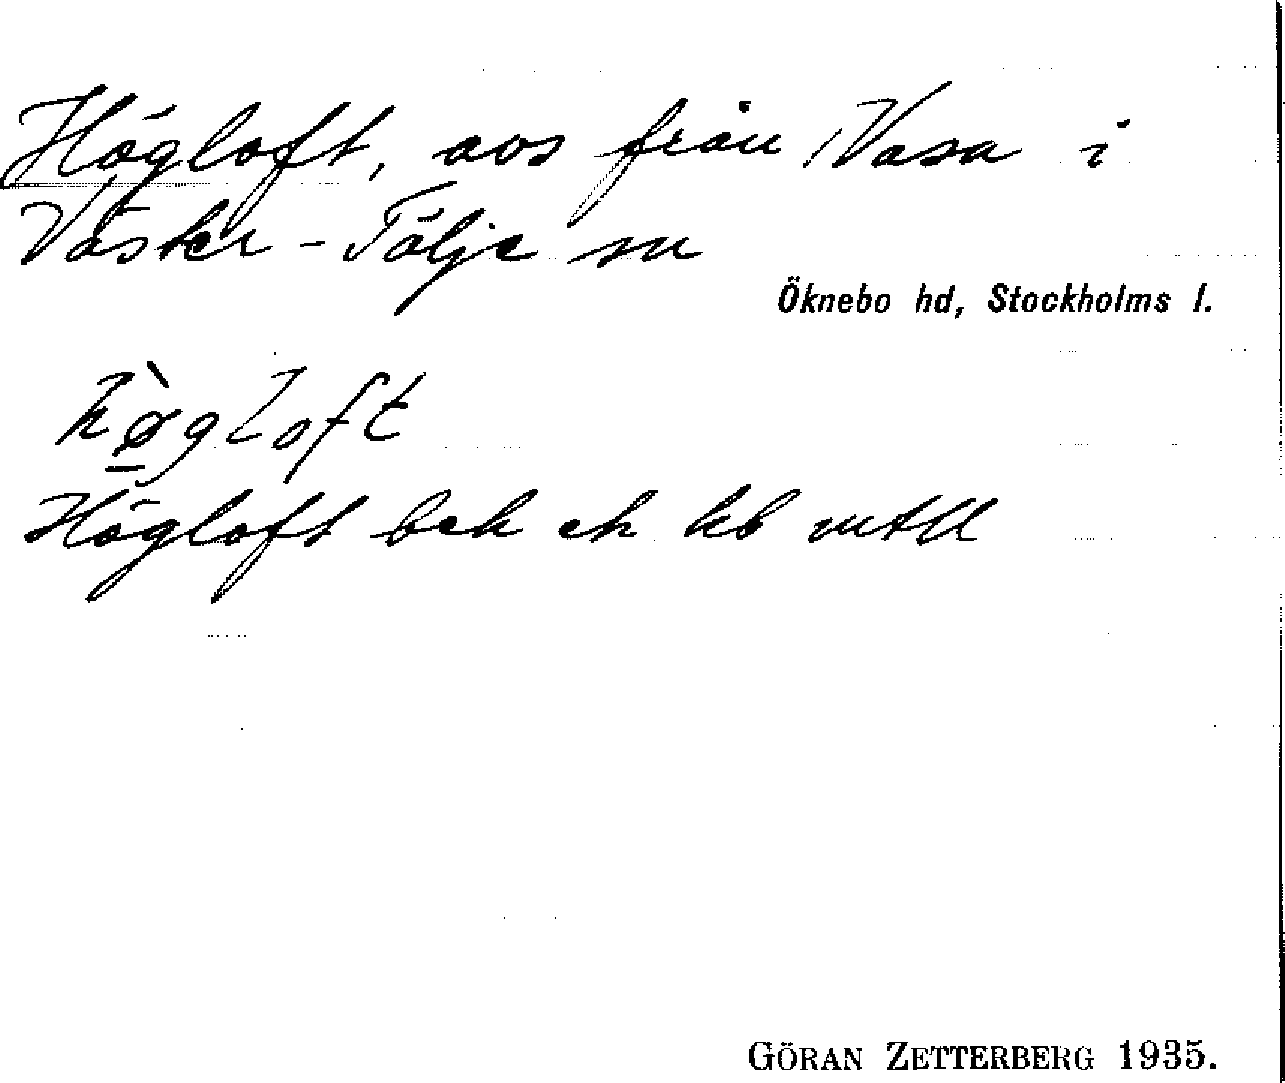 Högloft, avs från Vasa i
Väster-Tälje sn
Öknebo hd, Stockholms l.
hø̀gloft
Högloft bek ek kb mtll
GÖRAN ZETTERBERG 1935.